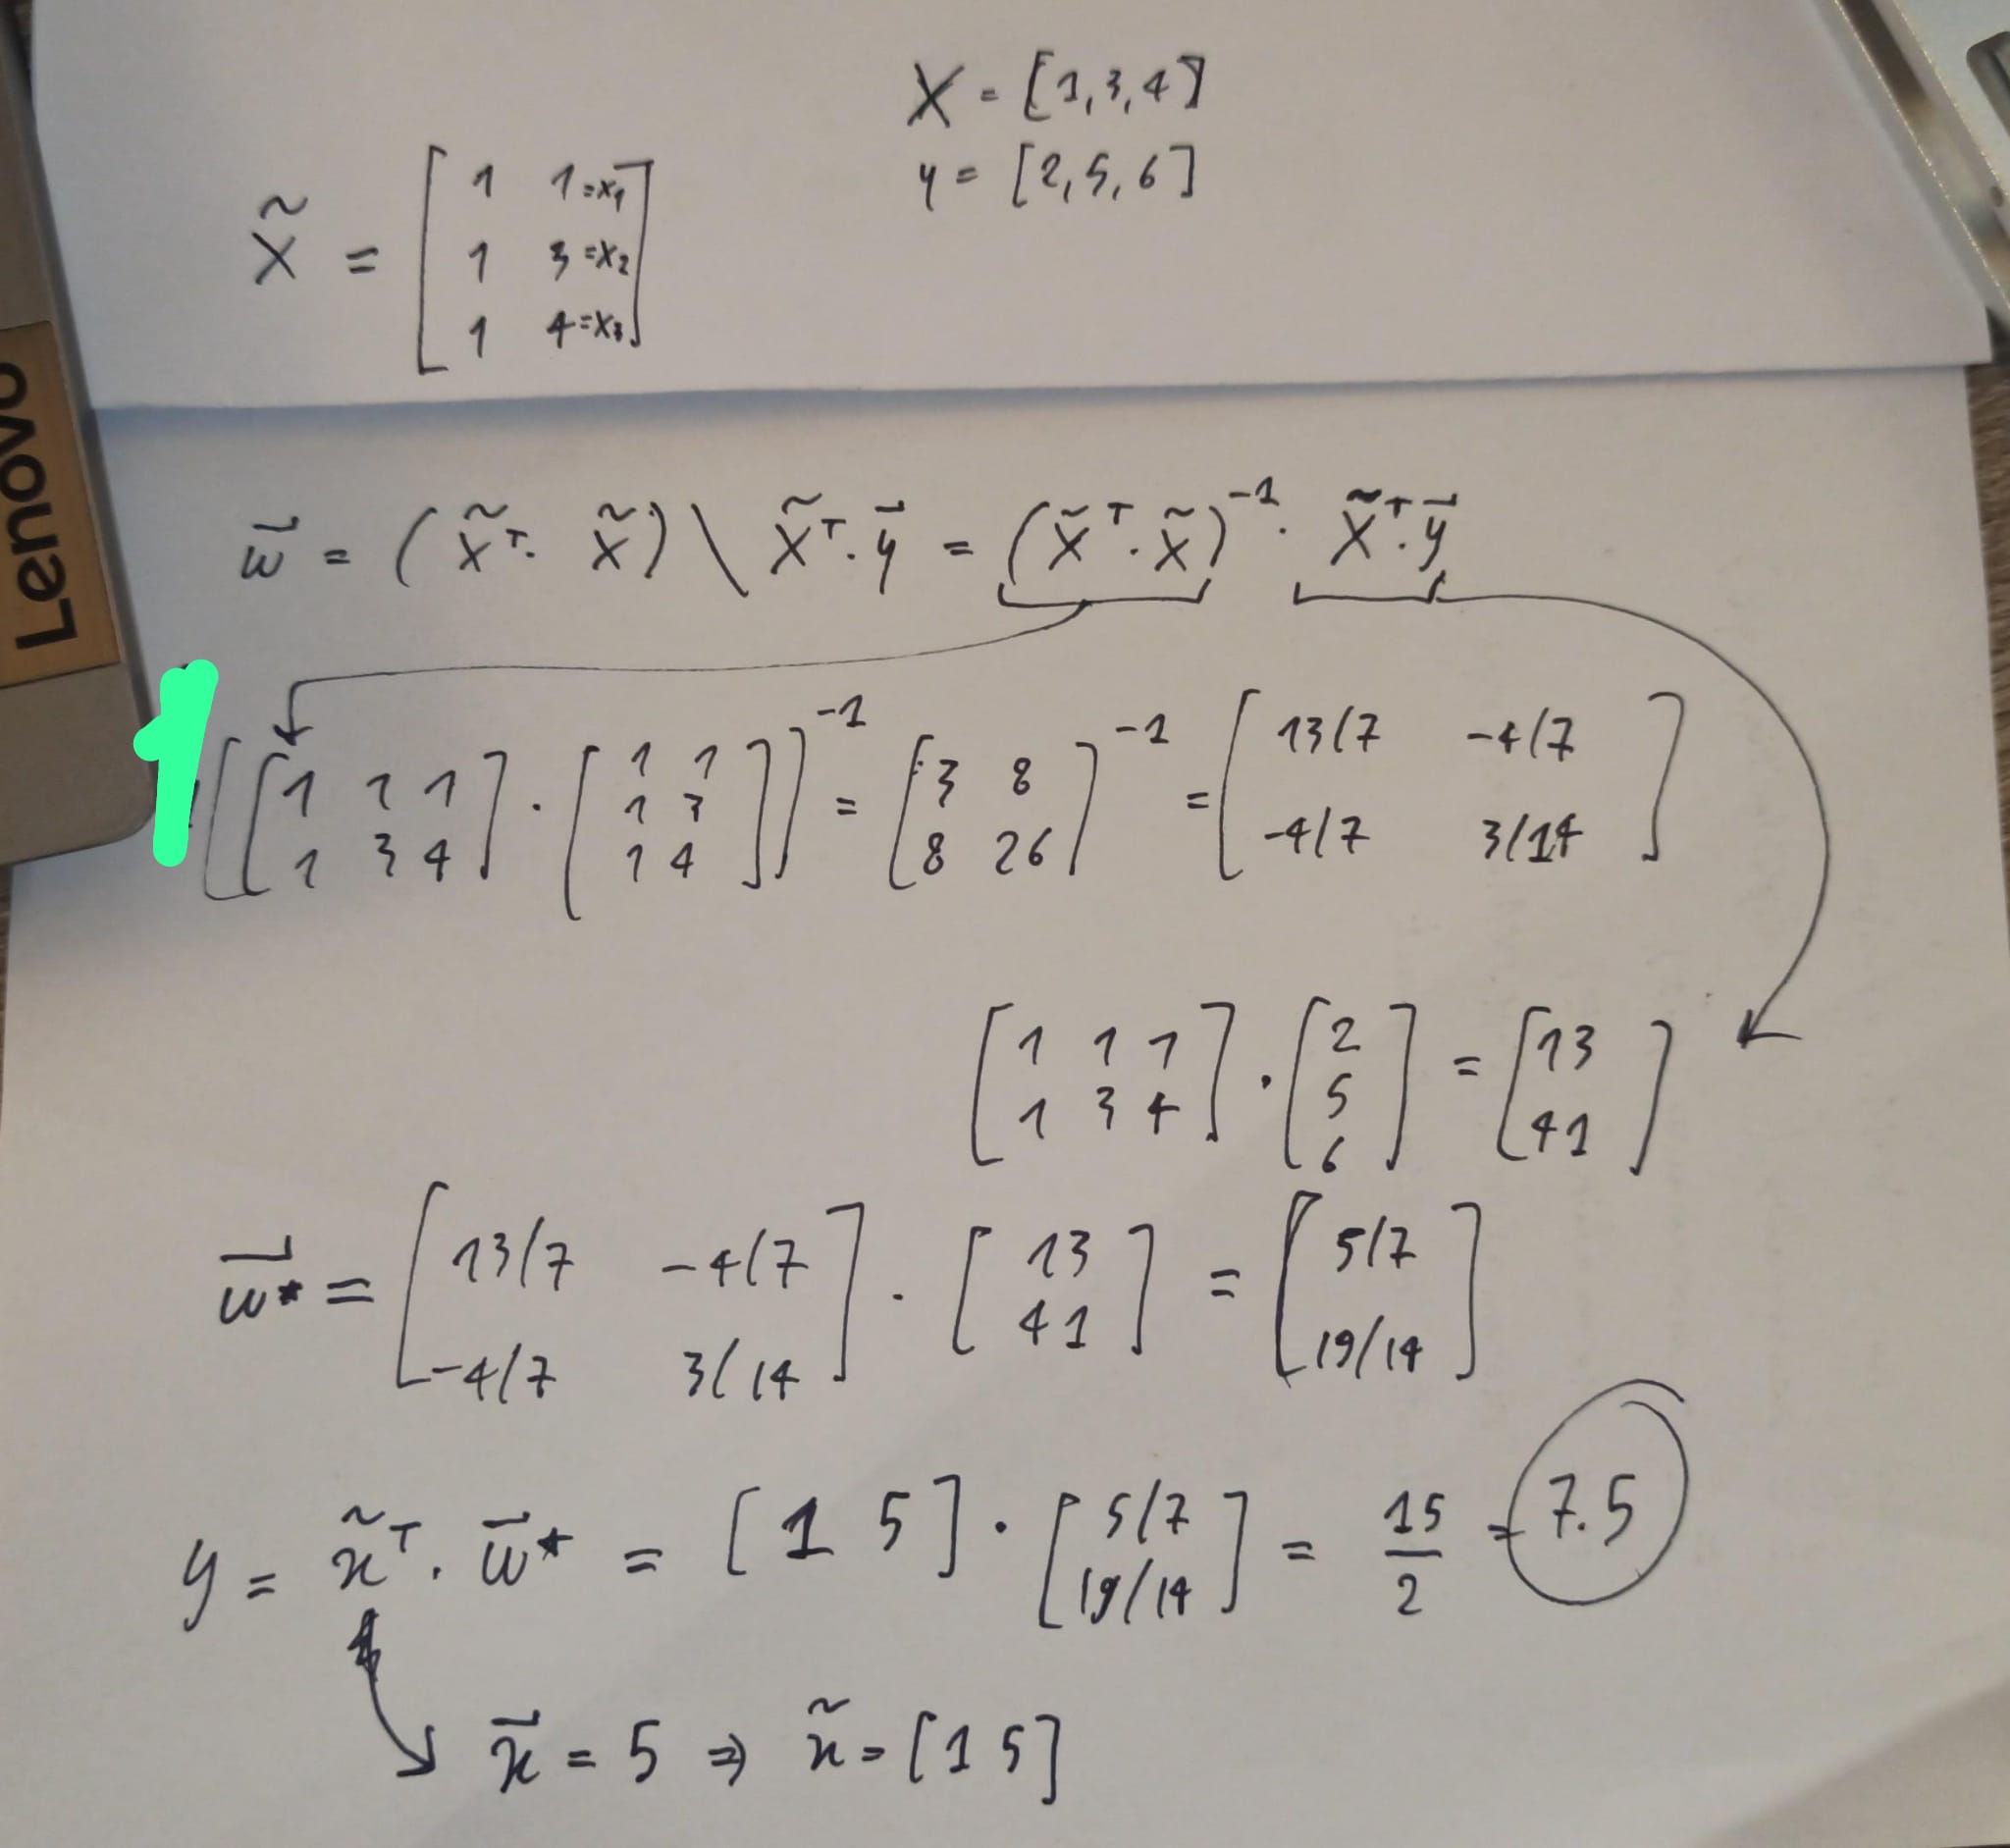 X = [1,3,4]
y = [2,5,6]
X̃ = [1 1=x₁
1 3=x₂
1 4=x₃]
Lenovo
w⃗ = (X̃ᵀ· X̃) \ X̃ᵀ·y⃗ = (X̃ᵀ·X̃)⁻¹ · X̃ᵀ·y⃗
1
[[1 1 1 1 3 4] · [1 1 1 3 1 4]]⁻¹ = [3 8 8 26]⁻¹ = [13/7 -4/7 -4/7 3/14]
[1 1 1 1 3 4] · [2 5 6] = [13 41]
w⃗* = [13/7 -4/7 -4/7 3/14] · [13 41] = [5/7 19/14]
y = x̃ᵀ · w⃗* = [1 5] · [5/7 19/14] = 15/2 = 7.5
x⃗ = 5 ⇒ x̃ = [1 5]